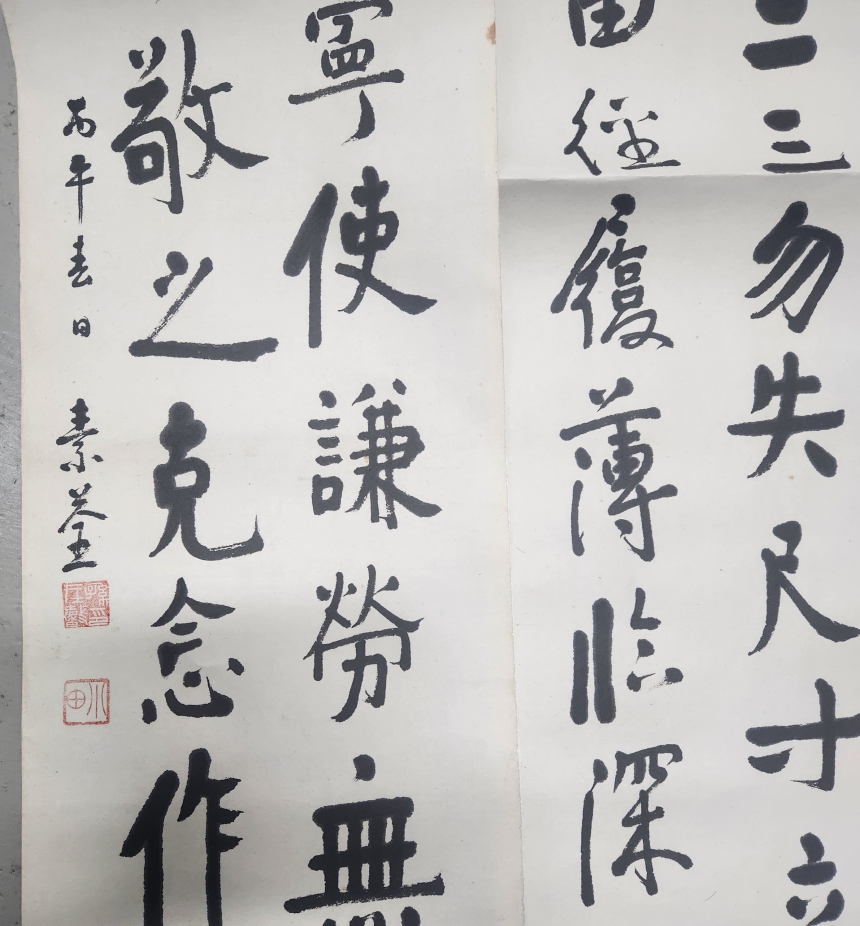 二三勿失尺寸六
由徑履薄临深
寧使謙勞無
敬之克念作
丙午春日 素荃